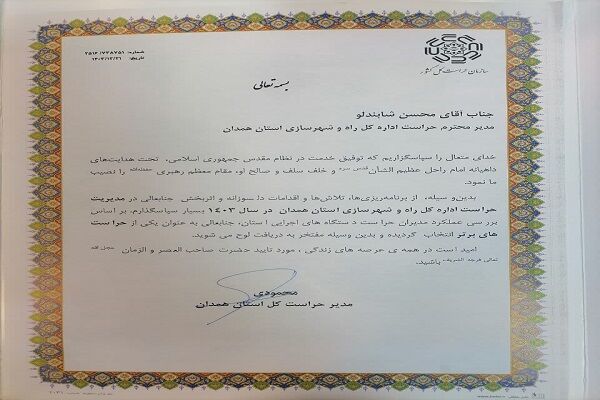 شماره: ۲۵۱۶/۷۲۸۷۵۱
تاریخ: ۱۴۰۳/۱۲/۲۱
سازمان حراست کل کشور
بسمه تعالی
جناب آقای محسن شابندلو
مدیر محترم حراست اداره کل راه و شهرسازی استان همدان
خدای متعال را سپاسگزاریم که توفیق خدمت در نظام مقدس جمهوری اسلامی، تحت هدایت‌های
داهیانه امام راحل عظیم الشأن قدس سره و خلف سلف و صالح او، مقام معظم رهبری مدظله‌العالی را نصیب
ما نمود.
بدین‌وسیله، از برنامه‌ریزی‌ها، تلاش‌ها و اقدامات دلسوزانه و اثربخش جنابعالی در مدیریت
حراست اداره کل راه و شهرسازی استان همدان در سال ۱۴۰۳ بسیار سپاسگذارم. بر اساس
بررسی عملکرد مدیران حراست دستگاه های اجرایی استان، جنابعالی به عنوان یکی از حراست
های برتر انتخاب گردیده و بدین وسیله مفتخر به دریافت لوح می شوید.
امید است در همه ی عرصه های زندگی، مورد تایید حضرت صاحب العصر و الزمان عجل الله
تعالی فرجه الشریف باشید.
محمودی
مدیر حراست کل استان همدان